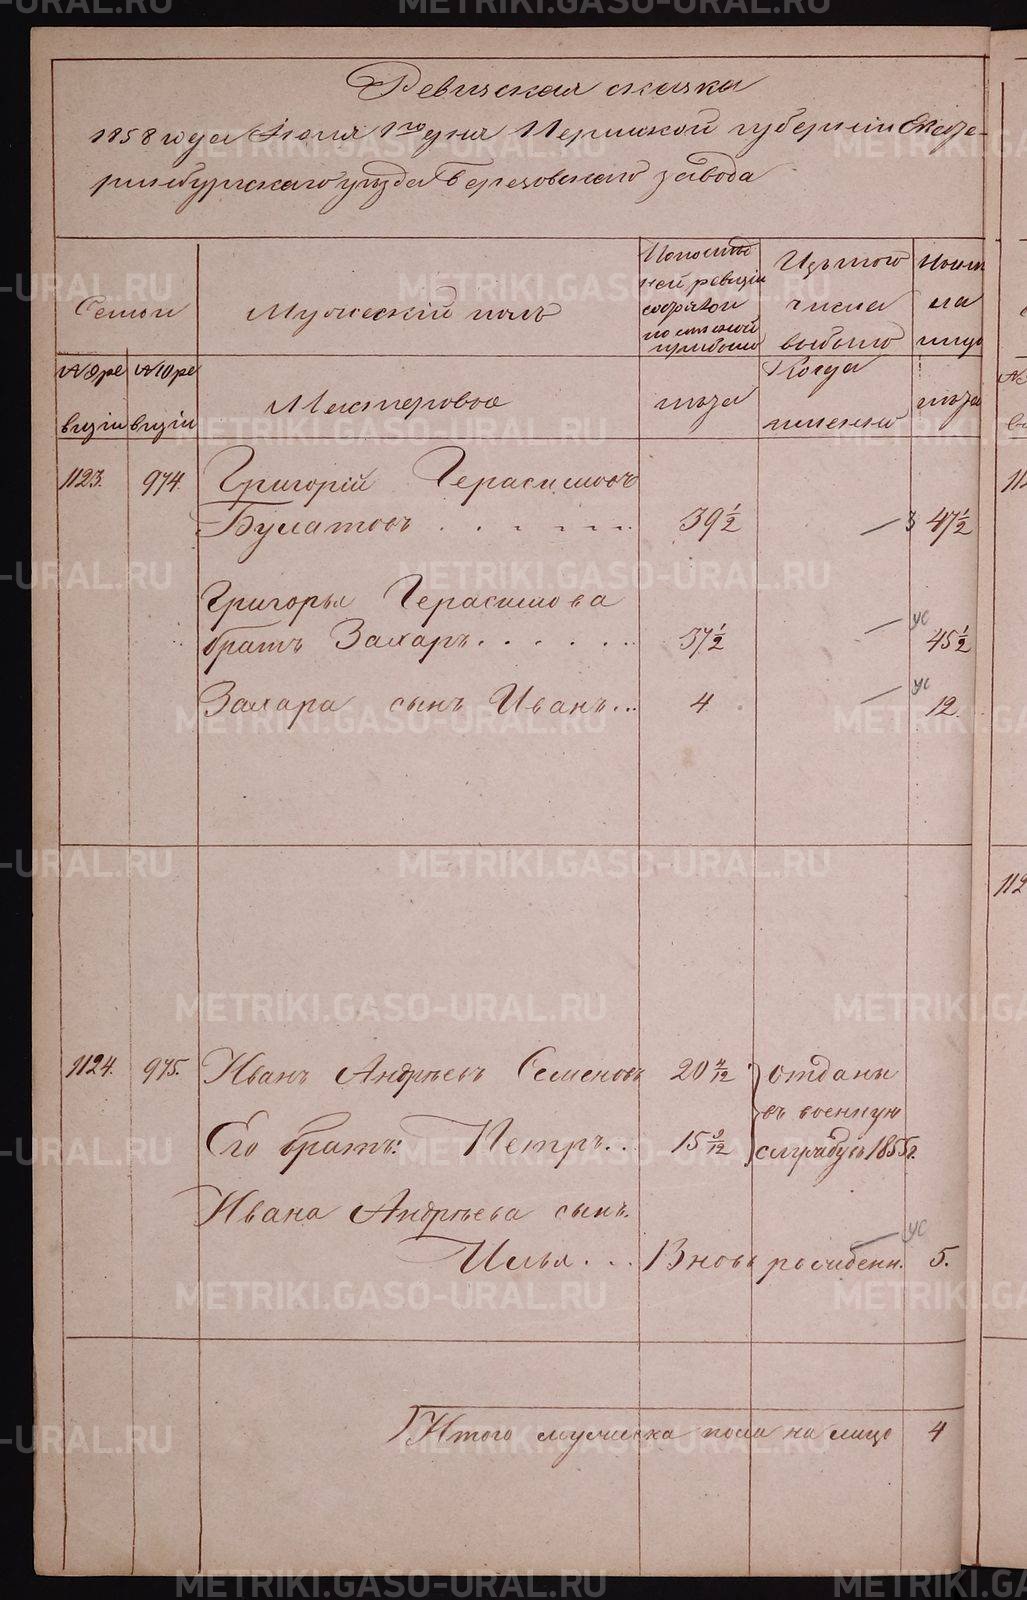 METRIKI.GASO-URAL.RU
Ревизская сказка
1858 года Июня 1го дня Пермской губернии Екате-
ринбургского уѣзда Березовского завода
Семьи
Мужеский полъ
По послѣд
ней ревизіи
Изъ того
числа
выбыло
Ныне
на
лицо
№ 9 ре
визіи
№ 10 ре
визіи
Мастеровые
лѣта
Когда
именно
лѣта
1123.
974.
Григорій Герасимовъ
Булатовъ . . . . . .
39 1/2
3
47 1/2
Григорья Герасимова
братъ Захаръ . . . . . .
37 1/2
ус
45 1/2
Захара сынъ Иванъ . . .
4
ус
12.
1124.
975.
Иванъ Андреевъ Семеновъ
20 4/12
отданы
въ военную
службу въ 1855 г.
Его братъ: Петръ . . .
15 9/12
Ивана Андреева сынъ
Илья . . . Вновь рожденн.
ус
5.
Итого мужеска пола на лицо
4